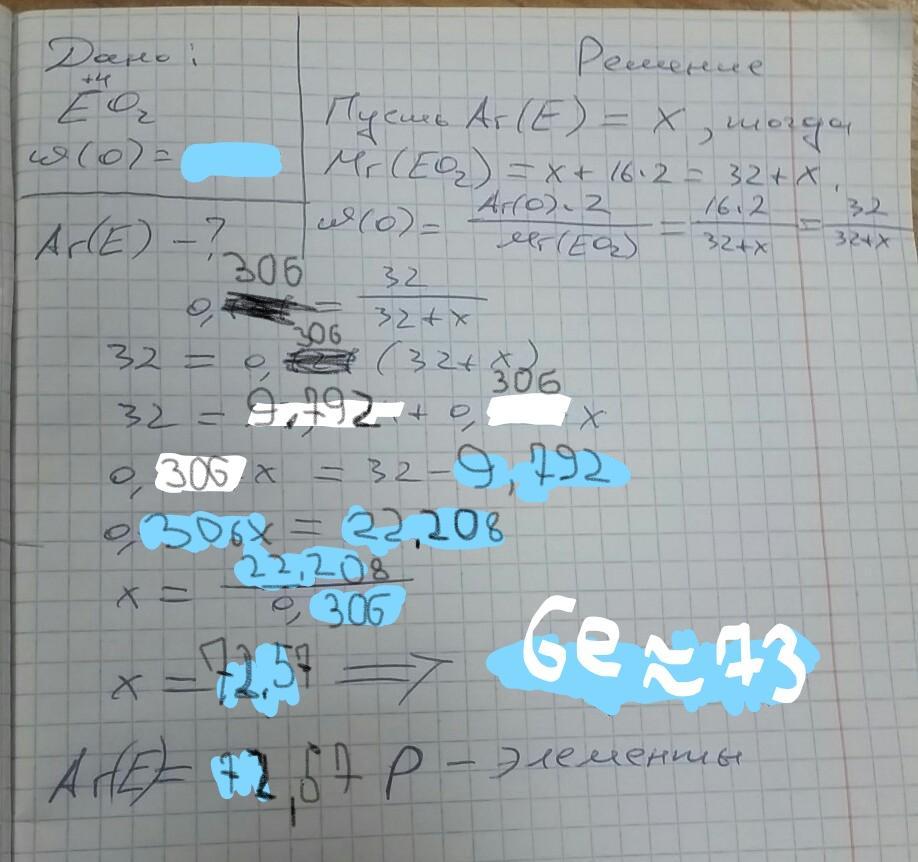 Дано:
Решение
+4
EO₂
Пусть Ar(E) = x, тогда
ω(O) =
Mr(EO₂) = x + 16·2 = 32 + x.
Ar(E) – ?
ω(O) = Ar(O)·2 / Mr(EO₂) = 16·2 / 32+x = 32 / 32+x
0,306 = 32 / 32 + x
32 = 0,306 (32 + x)
32 = 9,792 + 0,306 x
0,306 x = 32 – 9,792
0,306x = 22,208
x = 22,208 / 0,306
x = 72,57 ⟹ Ge ≈ 73
Ar(E) = 72,57 P – элементы